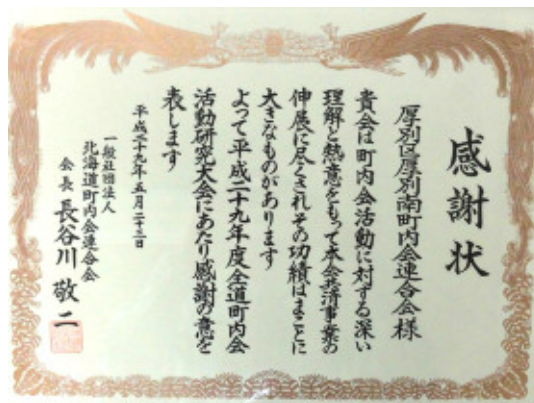 感謝状
厚別区厚別南町内会連合会様
貴会は町内会活動に対する深い
理解と熱意をもって本会共済事業の
伸展に尽くされその功績はまことに
大きなものがあります
よって平成二十九年度全道町内会
活動研究大会にあたり感謝の意を
表します
平成二十九年五月二十三日
一般社団法人
北海道町内会連合会
会長 長谷川敬二